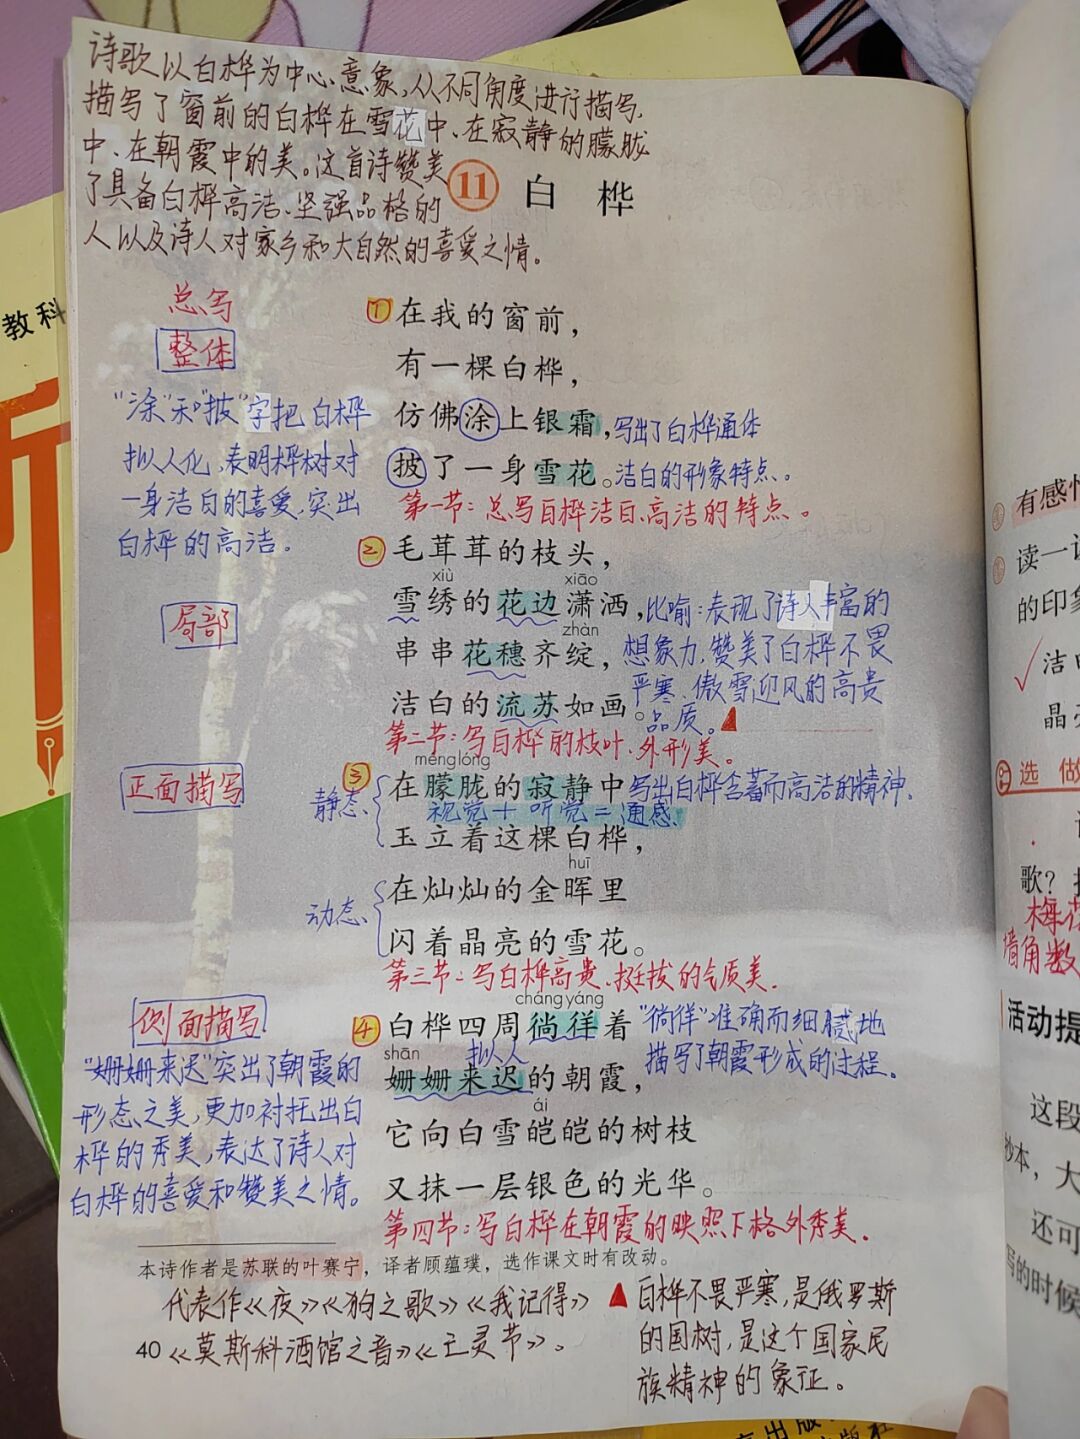 诗歌以白桦为中心意象,从不同角度进行描写,
描写了窗前的白桦在雪花中、在寂静的朦胧
中、在朝霞中的美。这首诗赞美
了具备白桦高洁、坚强品格的
人以及诗人对家乡和大自然的喜爱之情。
11 白桦
总写
整体
"涂"和"披"字把白桦
拟人化,表明桦树对
一身洁白的喜爱,突出
白桦的高洁。
1 在我的窗前,
有一棵白桦,
仿佛涂上银霜,
写出了白桦通体
披了一身雪花。
洁白的形象特点。
第一节:总写白桦洁白、高洁的特点。
局部
2 毛茸茸的枝头,
xiù xiāo
雪绣的花边潇洒,
zhàn
串串花穗齐绽,
洁白的流苏如画。
比喻:表现了诗人丰富的
想象力,赞美了白桦不畏
严寒、傲雪迎风的高贵
品质。
第二节:写白桦的枝叶、外形美。
正面描写
静态
méng lóng
3 在朦胧的寂静中
写出白桦含蓄而高洁的精神。
视觉+听觉=通感
玉立着这棵白桦,
动态
huī
在灿灿的金晖里
闪着晶亮的雪花。
第三节:写白桦高贵、挺拔的气质美.
侧面描写
"姗姗来迟"突出了朝霞的
形态之美,更加衬托出白
桦的秀美,表达了诗人对
白桦的喜爱和赞美之情。
cháng yáng
4 白桦四周徜徉着
拟人
shān
姗姗来迟的朝霞,
"徜徉"准确而细腻地
描写了朝霞形成的过程.
ái
它向白雪皑皑的树枝
又抹一层银色的光华。
第四节:写白桦在朝霞的映照下格外秀美.
本诗作者是苏联的叶赛宁,译者顾蕴璞,选作课文时有改动。
代表作《夜》《狗之歌》《我记得》
40 《莫斯科酒馆之音》《亡灵节》。
白桦不畏严寒,是俄罗斯
的国树,是这个国家民
族精神的象征。
教科
有感情
读一读
的印象
洁白
晶亮
选 做
歌?
梅花
墙角数
活动提
这段
抄本,大
还可
写的时候
出版